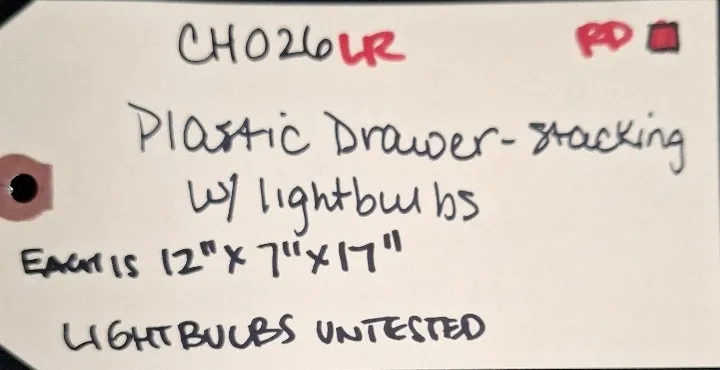 CH026LR RD
Plastic Drawer-stacking
w/ lightbulbs
EACH IS 12" x 7" x 17"
LIGHTBULBS UNTESTED